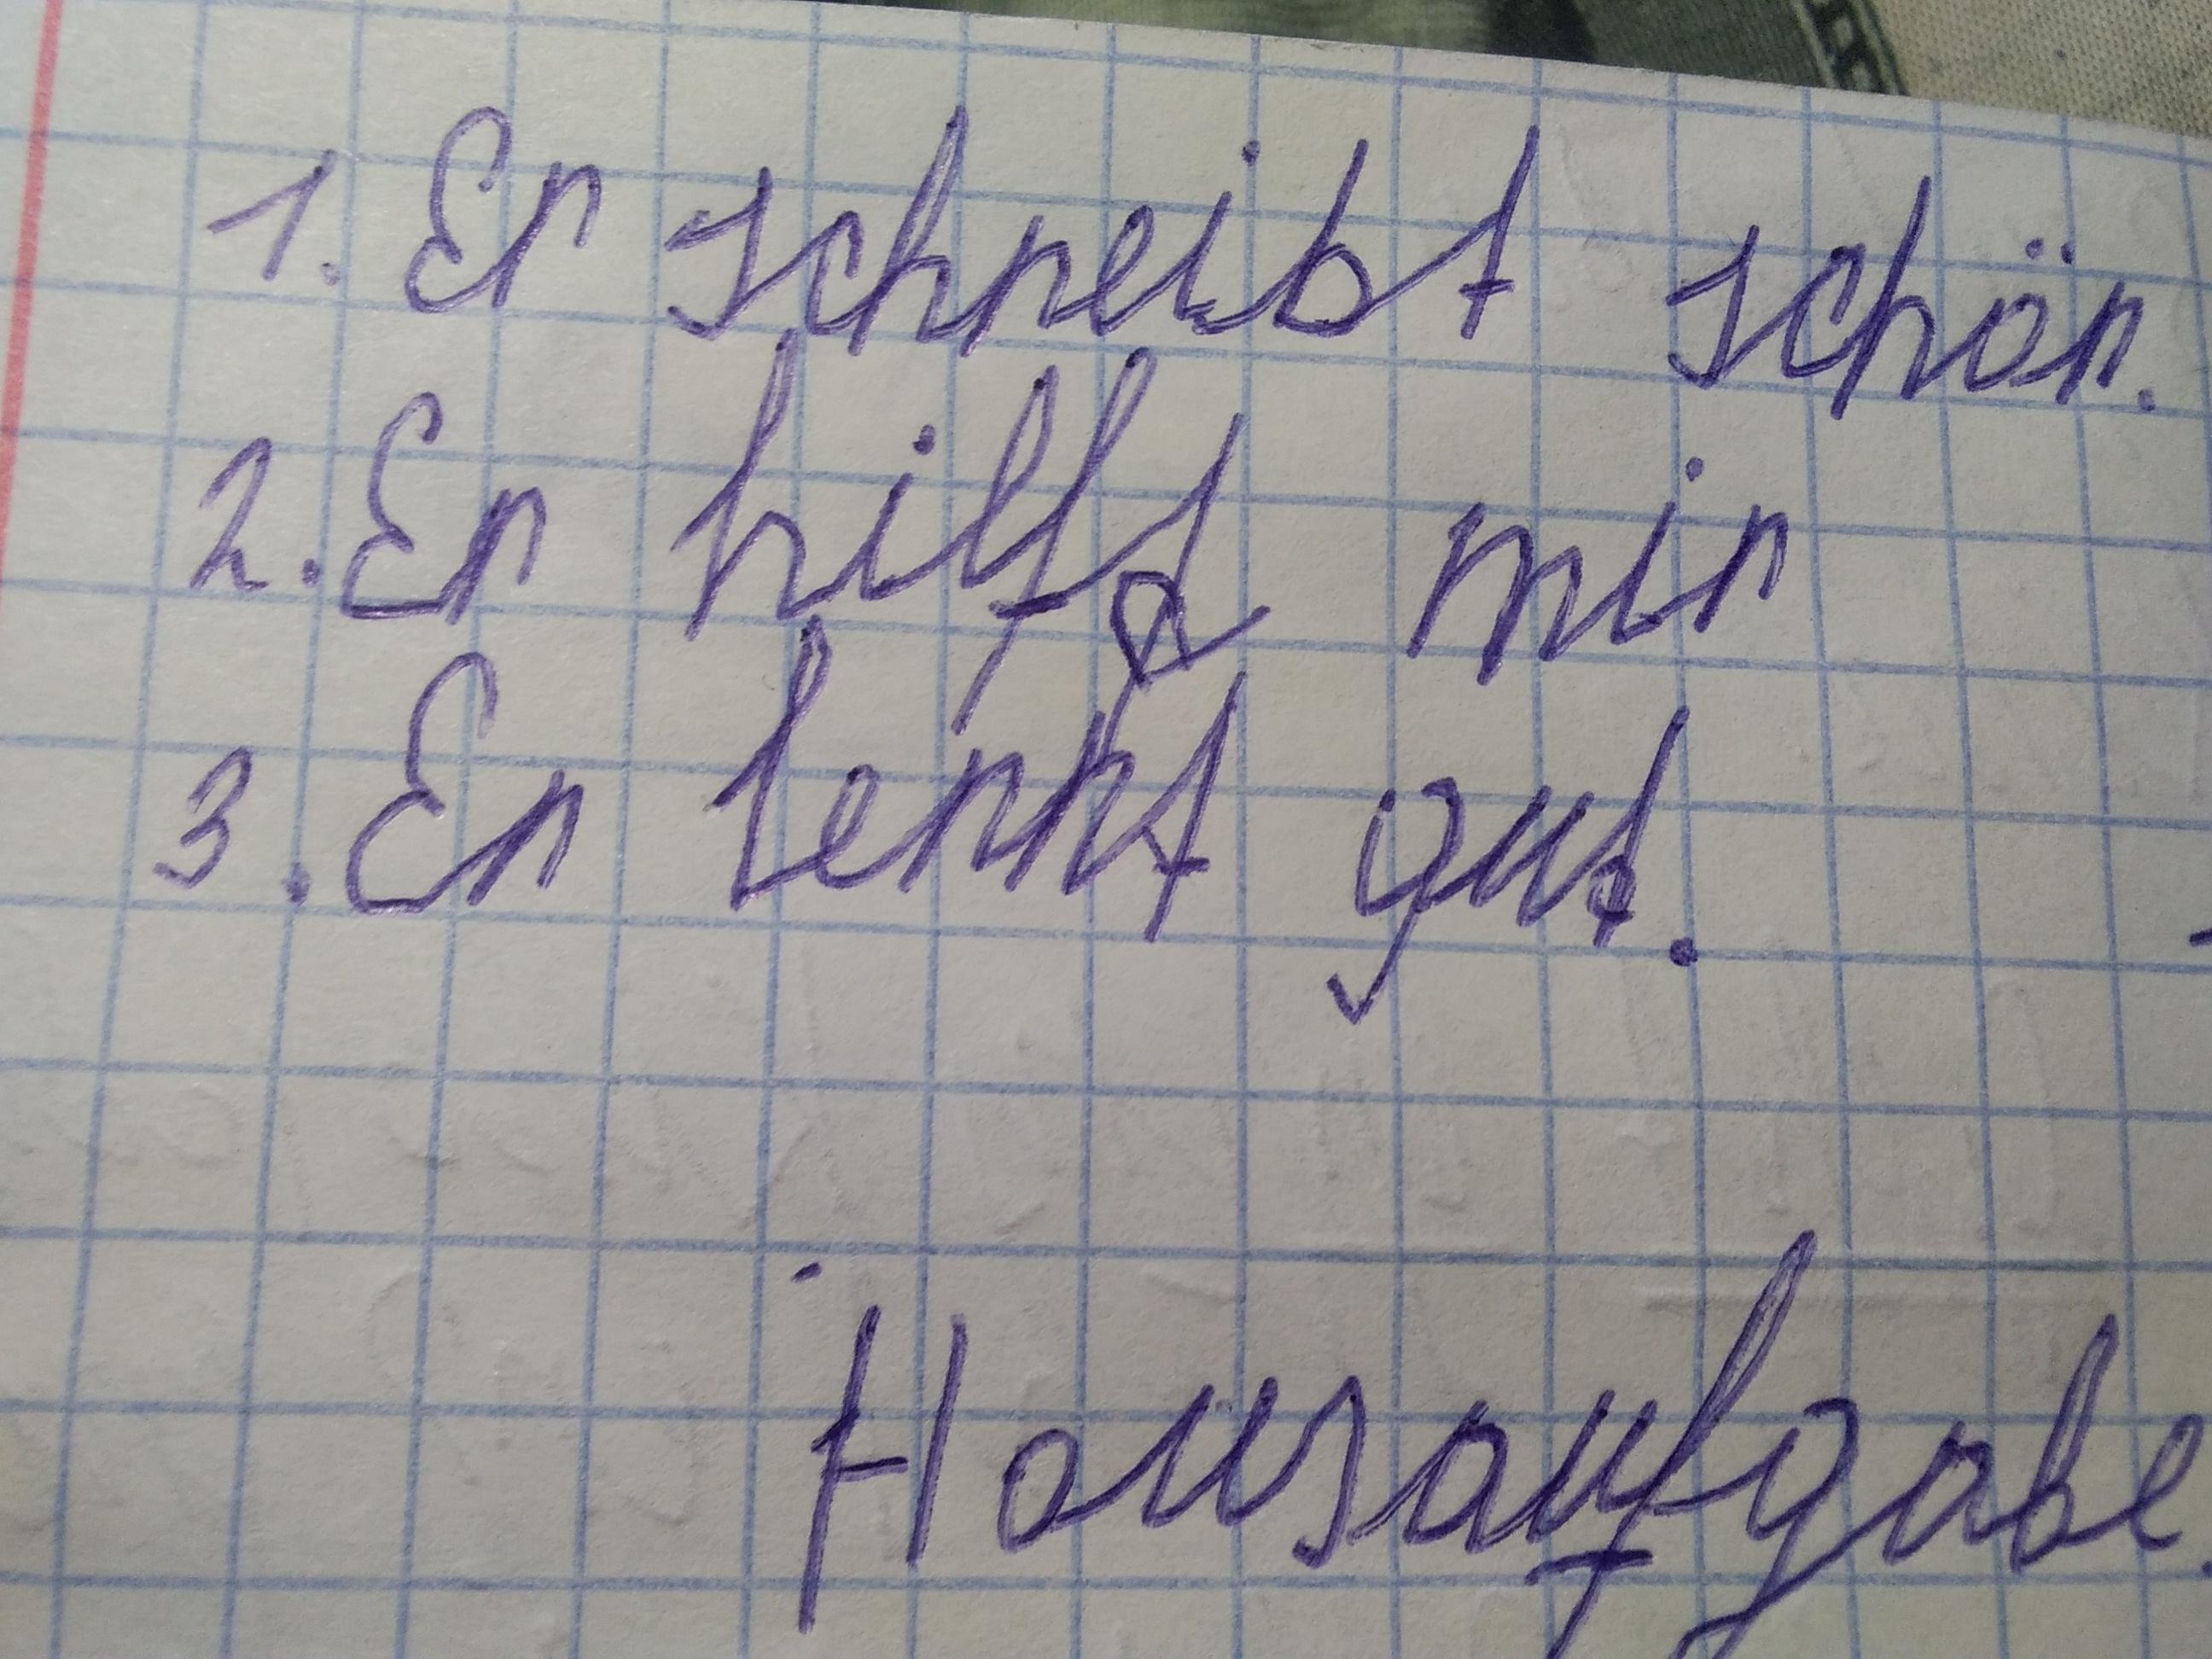 1. Er schreibt schön.
2. Er hilft mir
3. Er lernt gut.
Hausaufgabe.